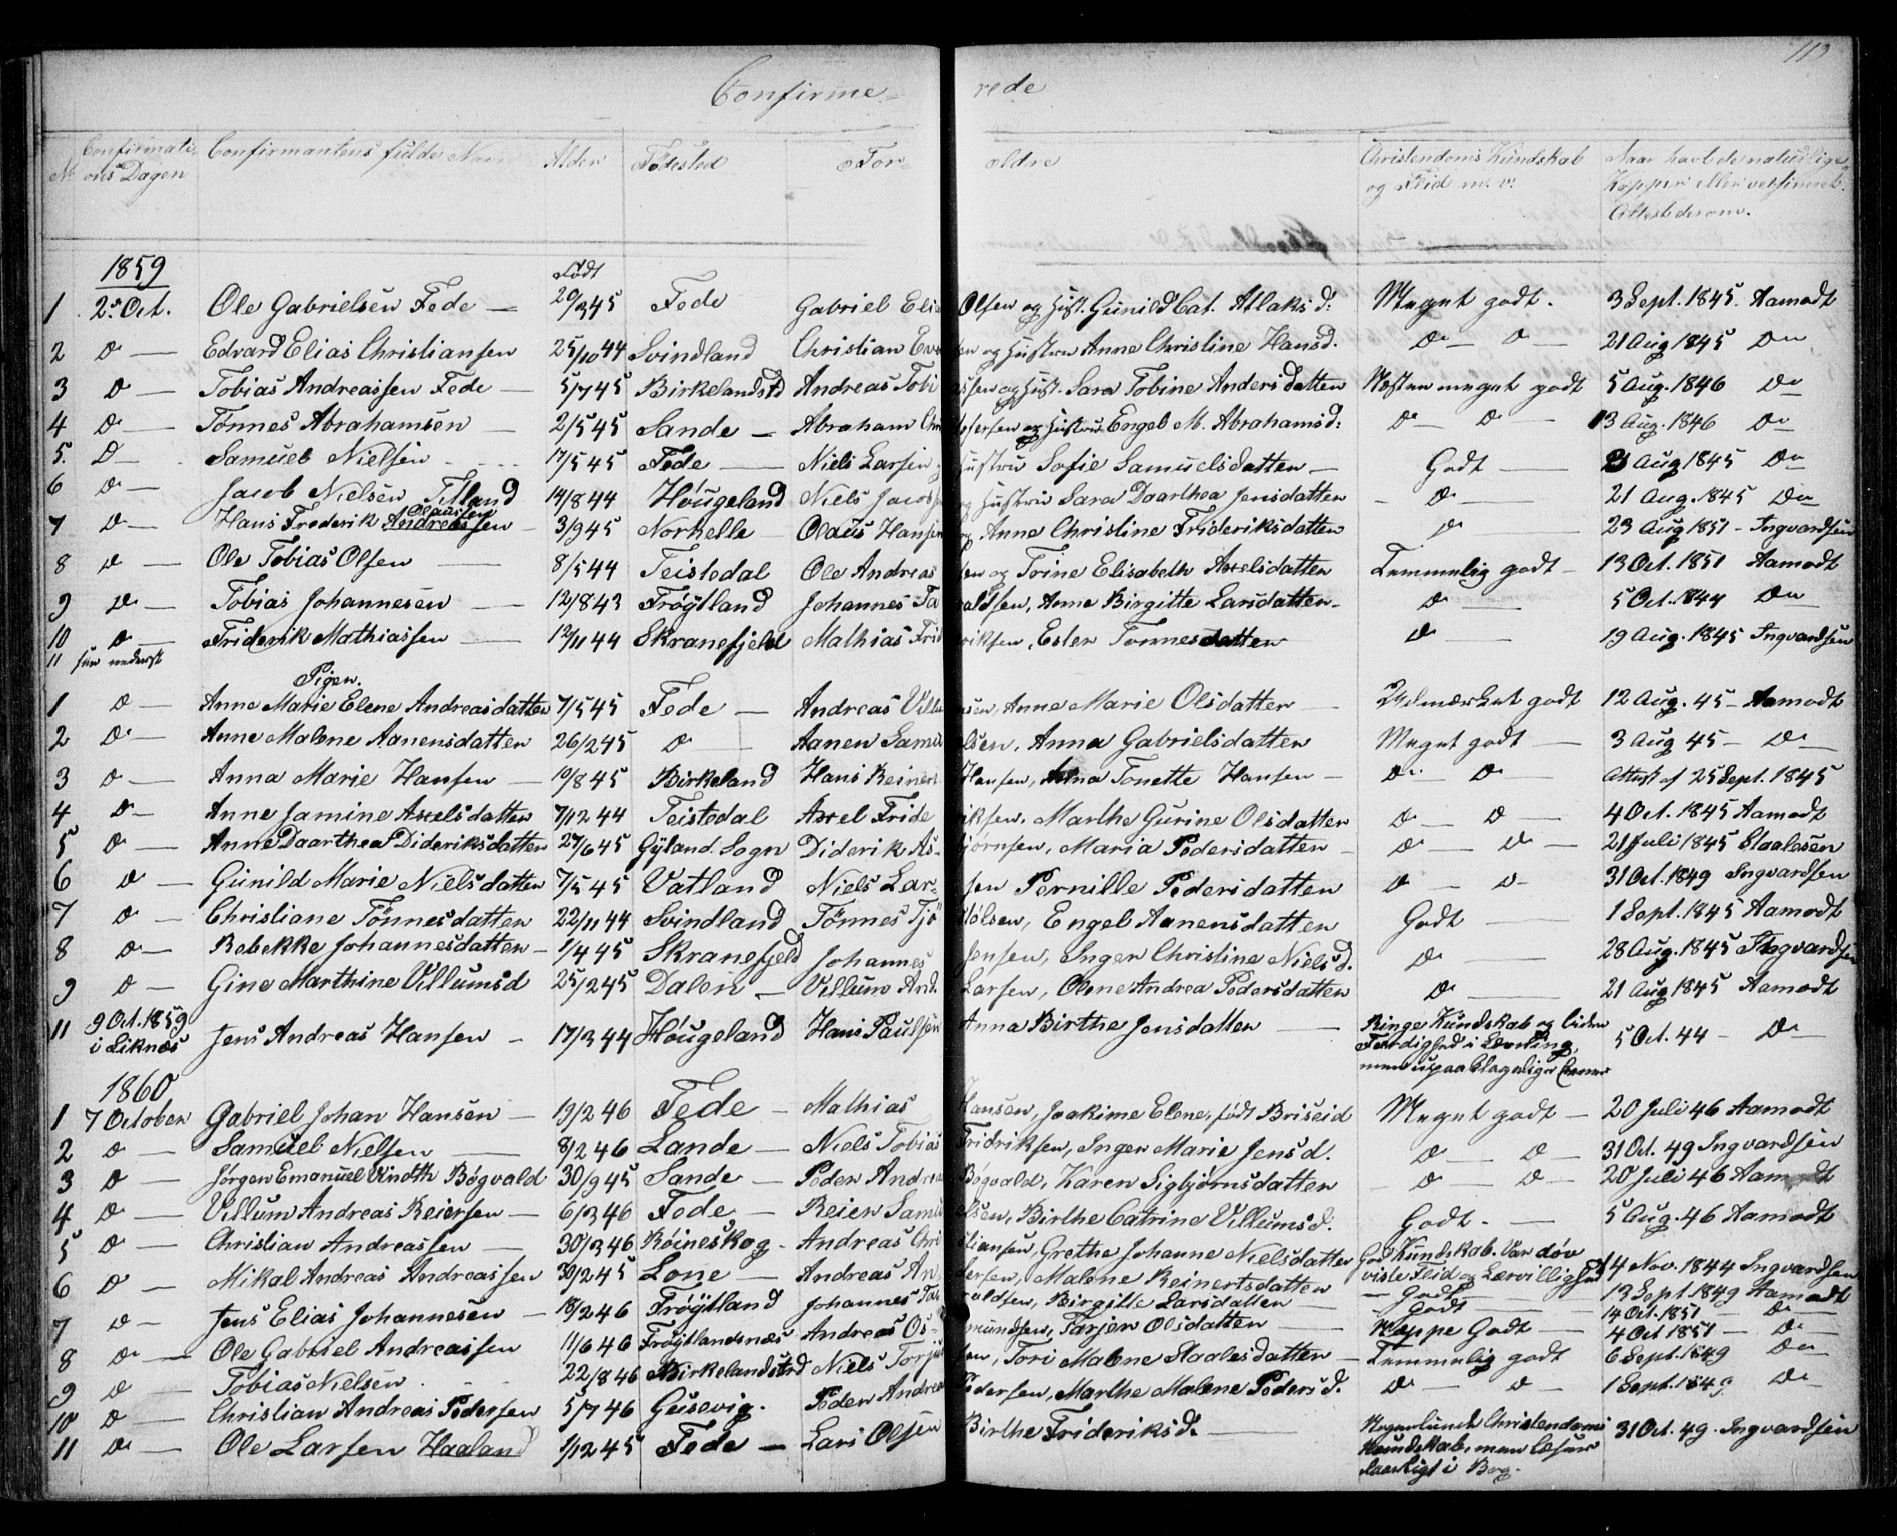 113
Confirme- rede
No Confirmati- ons Dagen Confirmantens fulde Navn Alder Fødested For- ældre Christendoms Kundskab og Flid m. v. Naar havt de naturlige Kopper eller vaksineret. Attest derom.
1859 Født
1 2den Oct. Ole Gabrielsen Fede — 20/3 45 Fede Gabriel Elias Olsen og Hust. Gunild Cat. Atlaksd: Meget godt. 3 Sept. 1845. Aamodt
2 Do — Edvard Elias Christiansen 25/10 44 Svindland Christian sen og Hustru Anne Christine Hansd. Do — Do — 21 Aug 1845 Do
3 Do — Tobias Andreassen Fede — 5/7 45 Birkelandstd Andreas Tobi assen og Hust. Sara Tobine Andersdatten Næsten meget godt 5 Aug. 1846 Do
4 Do — Tønnes Abrahamsen — 2/5 45 Sande — Abraham Chri stofersen og Hustru Engel M. Abrahamsd: Do — Do — 13 Aug. 1846 Do
5. Do — Samuel Nielsen 17/5 45 Fede — Niels Larsen og Hustru Sofie Samuelsdatten — Godt — 3 Aug 1845 Do
6 Do — Jacob Nielsen Titland 14/8 44 Høugeland Niels Jacobsen og Hustru Sara Daarthea Jensdatten — Do — 21 Aug. 1845 Do
7 Do — Hans Frederik Andreassen Olaussen — 3/9 45 Norkelle — Olaus Hansen og Anne Christine Frideriksdatten Do — 23 Aug 1851 - Ingvardsen
8 Do — Ole Tobias Olsen — 8/5 44 Teistedal Ole Andreas sen og Trine Elisabeth Axelsdatten Temmelig godt — 13 Oct. 1851 Aamodt
9 Do — Tobias Johannesen — 12/8 43 Frøytland Johannes Ta raldsen, Anne Birgitte Larsdatten - Do — 5 Oct. 1844 Do
10 Do — Friderik Mathiassen — 12/11 44 Skranefjeld Mathias Frid eriksen, Ester Tønnesdatten Do — 19 Aug. 1845 Ingvardsen
11 see nederst
Piger.
1 Do — Anne Marie Elene Andreasdatten 7/5 45 Fede — Andreas Villu msen, Anne Marie Olsdatten — Udmærket godt 12 Aug. 45 - Aamodt
2 Do — Anne Malene Aanensdatten 26/2 45 Do — Aanen Samu elsen, Anna Gabrielsdatten Meget godt — 3 Aug 45 - Do
3 Do — Anna Marie Hansen — 19/8 45 Birkeland Hans Reinert Hansen, Anna Tonette Hansen — Do — Do — Attest af 25 Sept. 1845
4 Do — Anne Jamine Axelsdatten 7/12 44 Teistedal Axel Fride riksen. Marthe Gurine Olsdatter Do — Do — 4 Oct. 1845 Aamodt
5 Do — Anne Daarthea Dideriksdatten 27/6 45 Gyland Sogn Diderik As- bjørnsen, Maria Pedersdatten — Do — Do — 21 Juli 1845 Staalesen
6 Do — Gunild Marie Nielsdatten 7/5 45 Vatland Niels Lar- sen Pernille Pedersdatten Do — Do — 31 Oct. 1849 Ingvardsen
7 Do — Christiane Tønnesdatten 22/11 44 Svindland Tønnes Tjø stølsen, Engel Aanensdatten Godt — 1 Sept. 1845 Aamodt
8 Do — Rebekke Johannesdatten — 1/4 45 Skranefjeld Johannes Jensen, Inger Christine Nielsd. Do — 28 Aug. 1845 Ingvardsen
9 Do — Gine Marthine Villumsd 25/2 45 Dalen — Villum And. Larsen, Olene Andrea Pedersdatten Do — 21 Aug 1845 Aamodt
11 9 Oct. 1859 i Liknæs Jens Andreas Hansen — 17/3 44 Høugeland Hans Paulsen Anna Birthe Jensdatten — Ringe Kundskab og liden Færdighed i Læsning, men upaaklagelige Evner 5 Oct. 44 - Do —
1860
1 7 October Gabriel Johan Hansen — 19/2 46 Fede — Mathias Hansen, Joakime Elene, født Briseid Meget godt — 20 Juli 46 Aamodt
2 Do — Samuel Nielsen — 8/2 46 Lande — Niels Tobias Fridriksen, Inger Marie Jensd. Do — Do — 31 Oct. 49 Ingvardsen
3 Do — Jørgen Emanuel Bøgvald 30/9 45 Sande — Peder Andreas Bøgvald, Karen Sigbjørnsdatten — Do — Do — 20 Juli 46 Aamodt
4 Do — Villum Andreas Reiersen — 6/3 46 Fede — Reier Samu elsen, Birthe Catrine Villumsd. Godt. — 5 Aug. 46 Aamodt
5 Do — Christian Andreassen — 30/3 46 Røineskog - Andreas Chri stiansen, Grethe Johanne Nielsdatter God Kundskab. Var døv viste Flid og Lærvillighed 14 Nov. 1844 Ingvardsen
6 Do — Mikal Andreas Andreassen 30/2 45 Lone — Andreas An dersen, Malene Reinertsdatten — Godt — 13 Sept 1849 Aamodt
7 Do — Jens Elias Johannesen — 18/2 46 Frøytland Johannes Ta raldsen, Birgitte Larsdatten — Godt — 14 Oct. 1851 — Do
8 Do — Ole Gabriel Andreassen 11/6 46 Frøytlandsnæs Andreas Os- mundsen, Tarjer Olsdatten — Neppe Godt — 4 Oct 1851 — Do
9 Do — Tobias Nielsen 22/8 46 Birkelandstrd Niels Torju sen, Tori Malene Staalesdatten — Temmelig godt 6 Sept. 1849 Do
10 Do — Christian Andreas Pedersen 5/7 46 Gusevig. Peder Andreas Pedersen, Marthe Malene Pedersd. Do — Do — 1 Sept. 1849 Do
11 Do — Ole Larsen Haaland 1/12 45 Fede — Lars Olsen Birthe Frideriksd. — Nogenlunde Christendoms Kundskab, men læser daarligt i Bog. 31 Oct. 49 - Ingvardsen